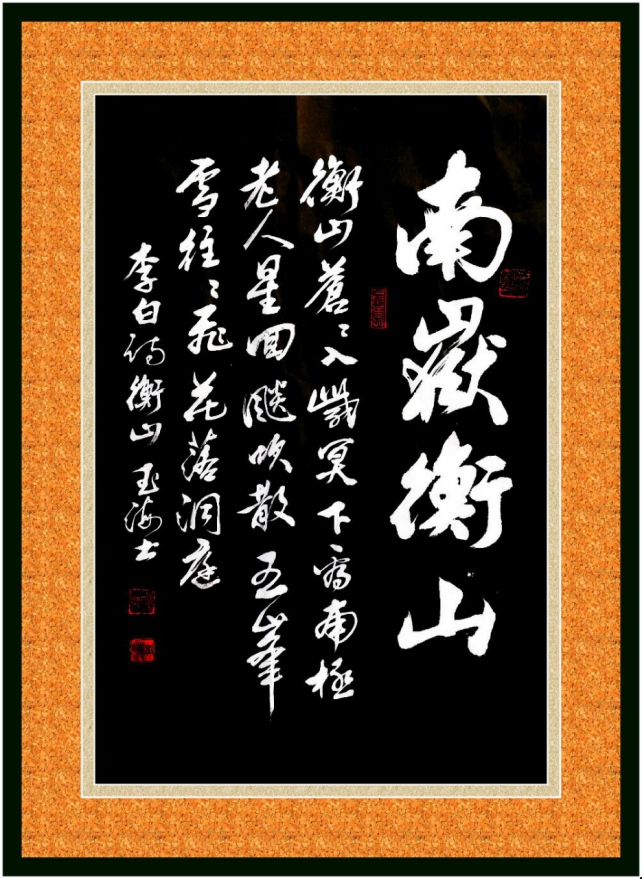 南嶽衡山
衡山蒼々入紫冥下看南極
老人星回飈吹散五峯
雪往々飛花落洞庭
李白詩衡山 玉海士